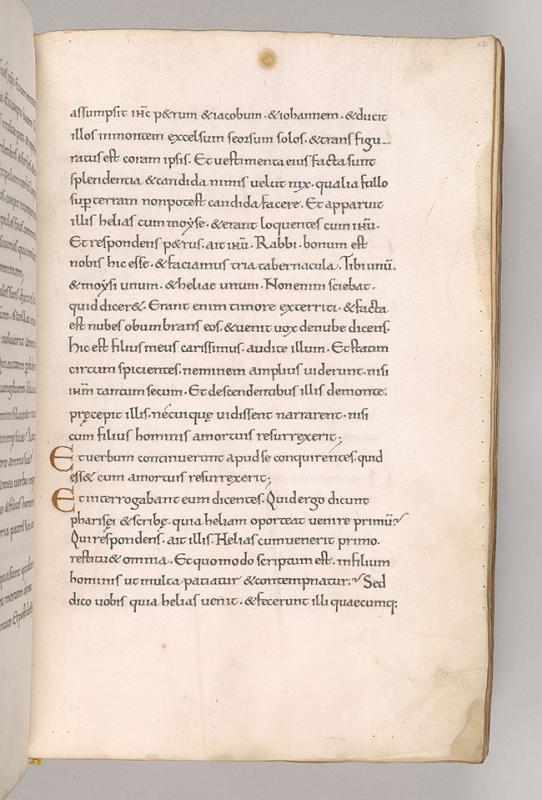 assumpsit ihc petrum & iacobum · & iohannem · & ducit
illos inmontem excelsum seorsum solos · & transfigu-
ratus est coram ipsis · Et uestimenta eius facta sunt
splendentia & candida nimis uelut nix · qualia fullo
sup terram nonpotest candida facere · Et apparuit
illis helias cum moyse · & erant loquentes cum ihu ·
Et respondens petrus · ait ihu · Rabbi · bonum est
nobis hic esse · & faciamus tria tabernacula · Tibi unū ·
& moysi unum · & heliae unum · Non enim sciebat ·
quid dicer& · Erant enim timore exterriti · & facta
est nubes obumbrans eos · & uenit uox denube dicens ·
hic est filius meus carissimus · audite illum · Et statim
circum spicientes · neminem amplius uiderunt · nisi
ihm tantum secum · Et descendentibus illis demonte ·
pręcepit illis · necuiquę uidissent narrarent · nisi
cum filius hominis amortuis resurrexerit ;
Et uerbum continuerunt apud se conquirentes · quid
ess& cum amortuis resurrexerit ;
Et interrogabant eum dicentes · Quid ergo dicunt
pharisęi & scribę · quia heliam oporteat uenire primū?
Qui respondens · ait illis · Helias cum uenerit primo ·
restitu& omnia · Et quomodo scriptum est · infilium
hominis ut multa patiatur & contempnatur ·? Sed
dico uobis quia helias uenit · & fecerunt illi quaecumq;